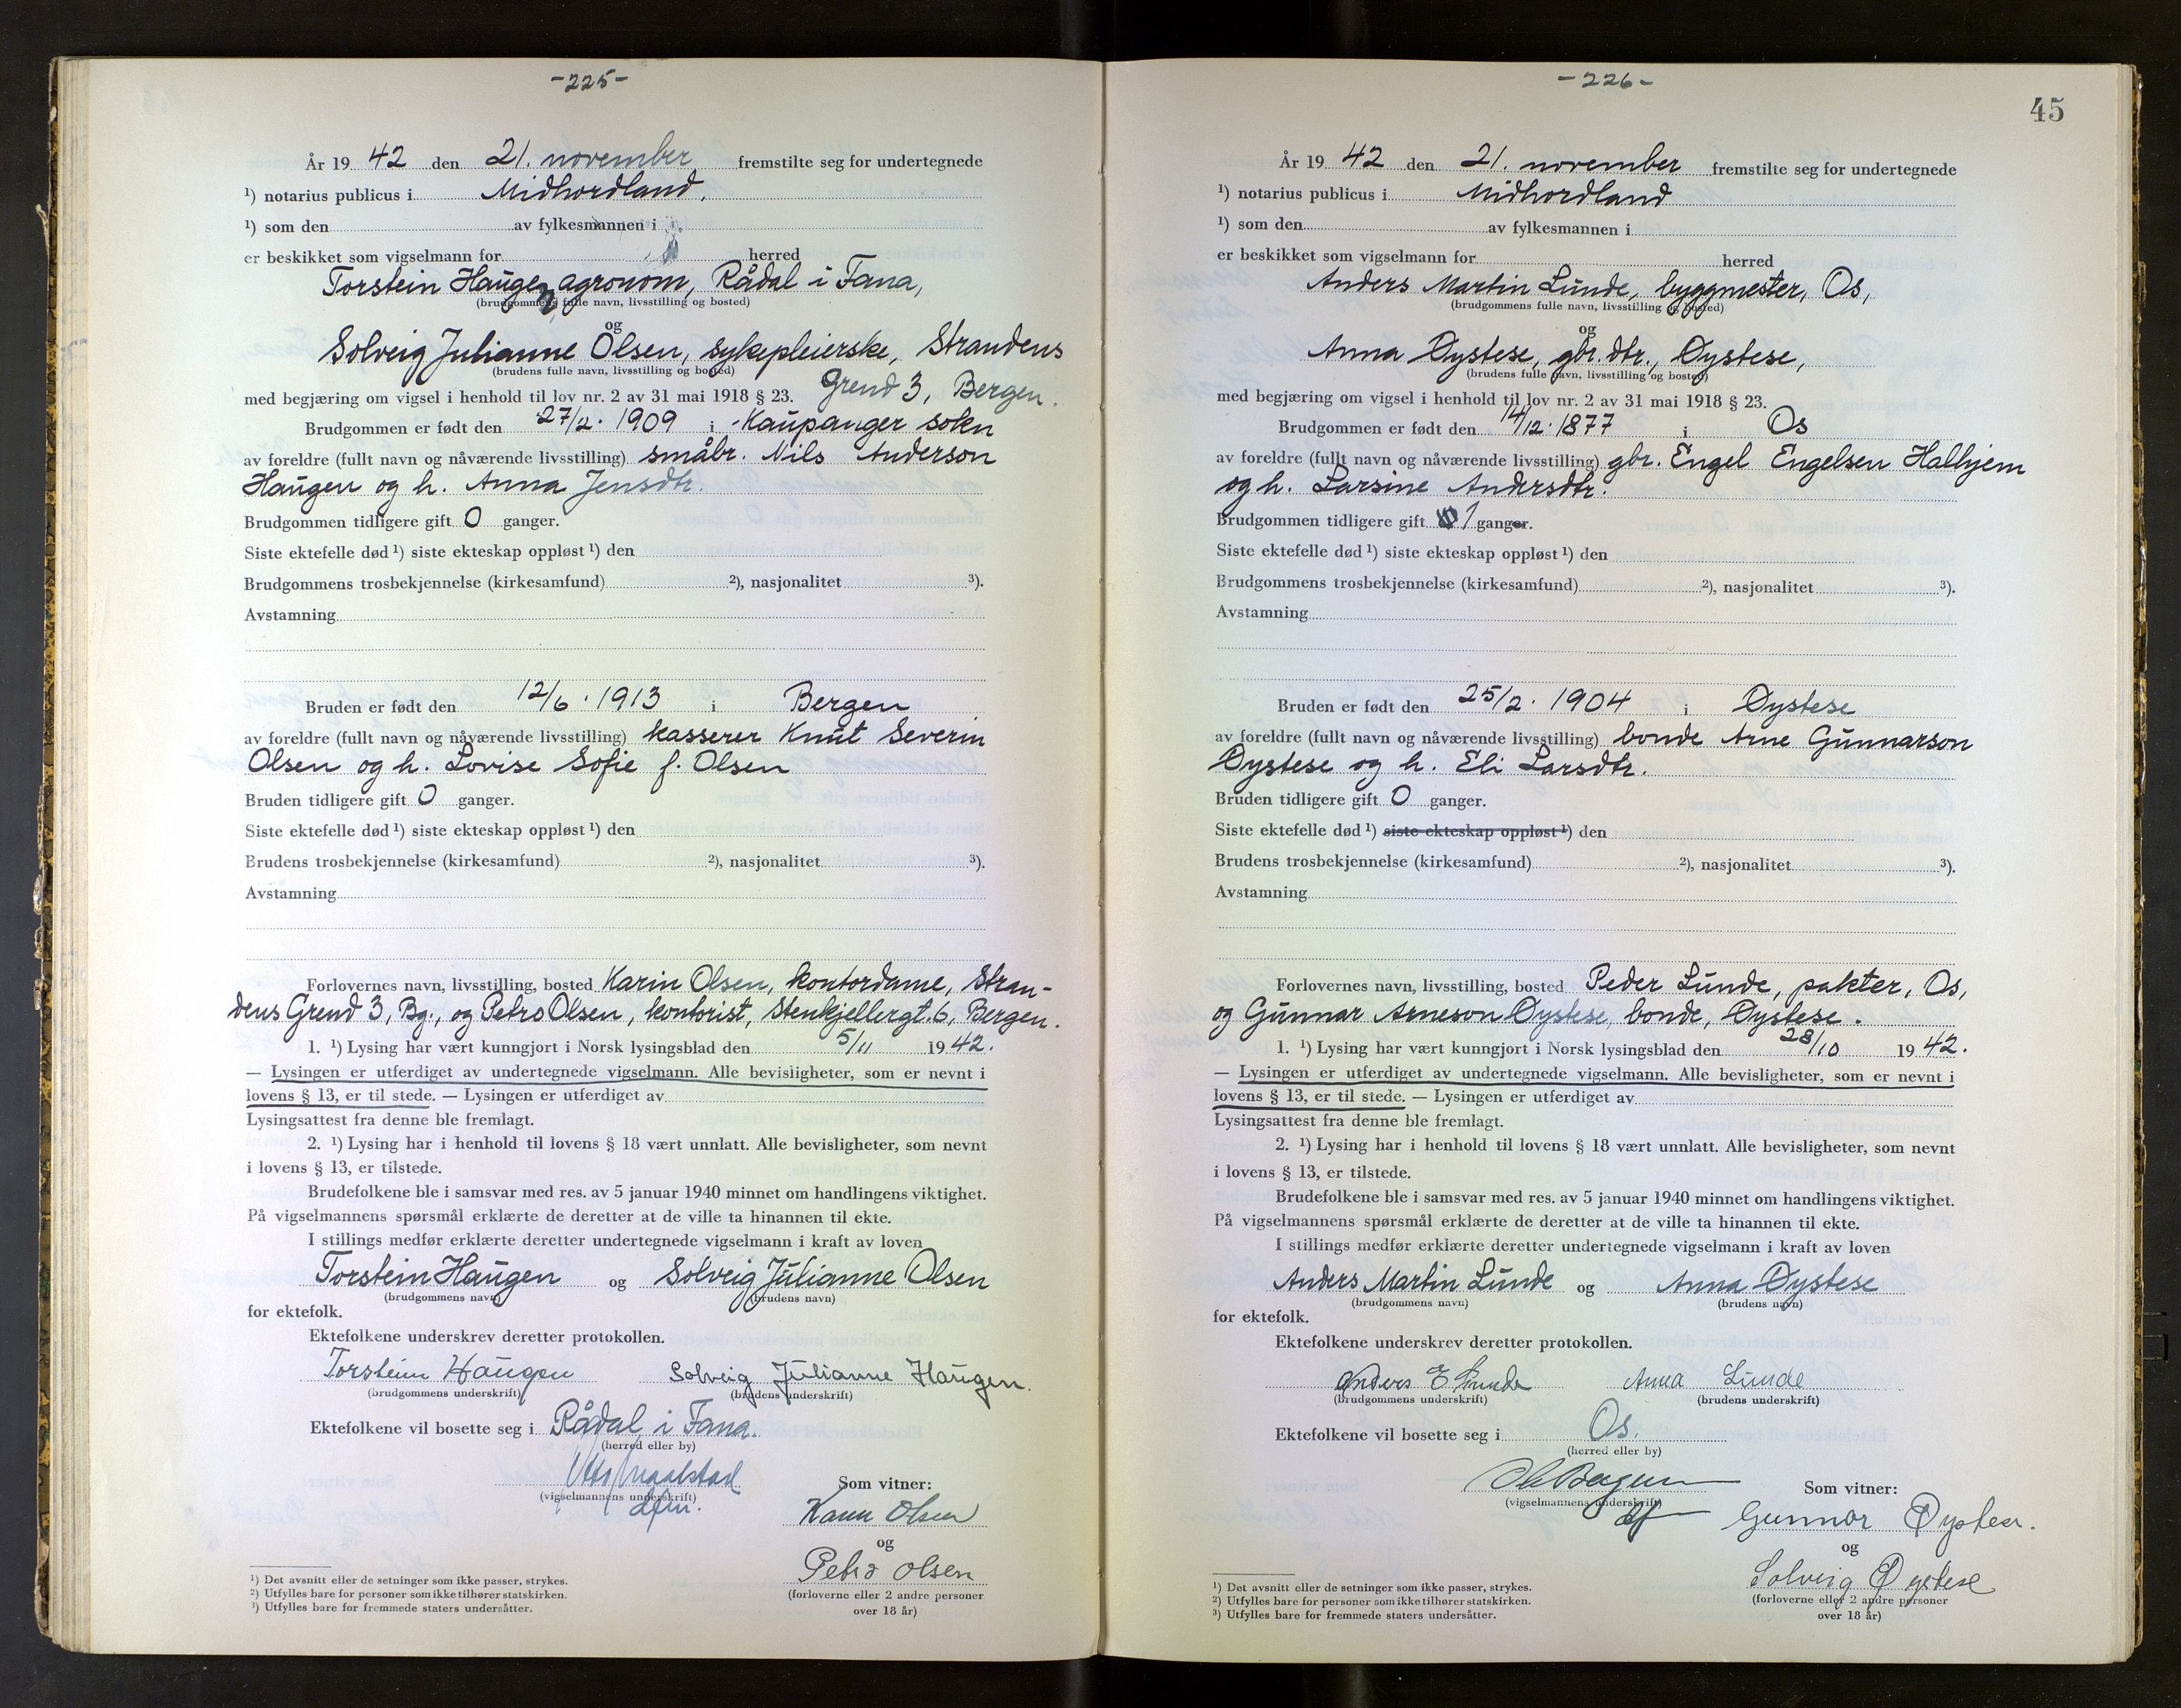 -225-
År 19 42 den 21. november fremstilte seg for undertegnede
¹) notarius publicus i Midhordland.
¹) som den av fylkesmannen i
er beskikket som vigselmann for herred
Torstein Haugen, agronom, Rådal i Fana,
(brudgommens fulle navn, livsstilling og bosted)
og
Solveig Julianne Olsen, sykepleierske, Strandens
(brudens fulle navn, livsstilling og bosted)
med begjæring om vigsel i henhold til lov nr. 2 av 31 mai 1918 § 23. Grend 3, Bergen.
Brudgommen er født den 27/2. 1909 i Kaupanger sokn
av foreldre (fullt navn og nåværende livsstilling) småbr. Nils Anderson
Haugen og h. Anna Jensdtr.
Brudgommen tidligere gift 0 ganger.
Siste ektefelle død ¹) siste ekteskap oppløst ¹) den
Brudgommens trosbekjennelse (kirkesamfund) ²), nasjonalitet ³).
Avstamning
Bruden er født den 12/6. 1913 i Bergen
av foreldre (fullt navn og nåværende livsstilling) kasserer Knut Severin
Olsen og h. Lovise Sofie f. Olsen
Bruden tidligere gift 0 ganger.
Siste ektefelle død ¹) siste ekteskap oppløst ¹) den
Brudens trosbekjennelse (kirkesamfund) ²), nasjonalitet ³).
Avstamning
Forlovernes navn, livsstilling, bosted Karin Olsen, kontordame, Stran-
dens Grend 3, Bg., og Petro Olsen, kontorist, Stenkjellergt. 6, Bergen.
1. ¹) Lysing har vært kunngjort i Norsk lysingsblad den 5/11 19 42.
— Lysingen er utferdiget av undertegnede vigselmann. Alle bevisligheter, som er nevnt i
lovens § 13, er til stede. — Lysingen er utferdiget av
Lysingsattest fra denne ble fremlagt.
2. ¹) Lysing har i henhold til lovens § 18 vært unnlatt. Alle bevisligheter, som nevnt
i lovens § 13, er tilstede.
Brudefolkene ble i samsvar med res. av 5 januar 1940 minnet om handlingens viktighet.
På vigselmannens spørsmål erklærte de deretter at de ville ta hinannen til ekte.
I stillings medfør erklærte deretter undertegnede vigselmann i kraft av loven
Torstein Haugen og Solveig Julianne Olsen
(brudgommens navn) (brudens navn)
for ektefolk.
Ektefolkene underskrev deretter protokollen.
Torstein Haugen Solveig Julianne Haugen.
(brudgommens underskrift) (brudens underskrift)
Ektefolkene vil bosette seg i Rådal i Fana.
(herred eller by)
(vigselmannens underskrift)
Som vitner:
Karin Olsen
og
Petro Olsen
(forloverne eller 2 andre personer
over 18 år)
¹) Det avsnitt eller de setninger som ikke passer, strykes.
²) Utfylles bare for personer som ikke tilhører statskirken.
³) Utfylles bare for fremmede staters undersåtter.
-226-
45
År 19 42 den 21. november fremstilte seg for undertegnede
¹) notarius publicus i Midhordland
¹) som den av fylkesmannen i
er beskikket som vigselmann for herred
Anders Martin Lunde, byggmester, Os,
(brudgommens fulle navn, livsstilling og bosted)
og
Anna Øystese, gbr. dtr., Øystese,
(brudens fulle navn, livsstilling og bosted)
med begjæring om vigsel i henhold til lov nr. 2 av 31 mai 1918 § 23.
Brudgommen er født den 14/12. 1877 i Os
av foreldre (fullt navn og nåværende livsstilling) gbr. Engel Engelsen Halhjem
og h. Larsine Andersdtr.
Brudgommen tidligere gift 1 ganger.
Siste ektefelle død ¹) siste ekteskap oppløst ¹) den
Brudgommens trosbekjennelse (kirkesamfund) ²), nasjonalitet ³).
Avstamning
Bruden er født den 25/2. 1904 i Øystese
av foreldre (fullt navn og nåværende livsstilling) bonde Arne Gunnarson
Øystese og h. Eli Larsdtr.
Bruden tidligere gift 0 ganger.
Siste ektefelle død ¹) siste ekteskap oppløst ¹) den
Brudens trosbekjennelse (kirkesamfund) ²), nasjonalitet ³).
Avstamning
Forlovernes navn, livsstilling, bosted Peder Lunde, pakter, Os,
og Gunnar Arneson Øystese, bonde, Øystese.
1. ¹) Lysing har vært kunngjort i Norsk lysingsblad den 28/10 19 42.
— Lysingen er utferdiget av undertegnede vigselmann. Alle bevisligheter, som er nevnt i
lovens § 13, er til stede. — Lysingen er utferdiget av
Lysingsattest fra denne ble fremlagt.
2. ¹) Lysing har i henhold til lovens § 18 vært unnlatt. Alle bevisligheter, som nevnt
i lovens § 13, er tilstede.
Brudefolkene ble i samsvar med res. av 5 januar 1940 minnet om handlingens viktighet.
På vigselmannens spørsmål erklærte de deretter at de ville ta hinannen til ekte.
I stillings medfør erklærte deretter undertegnede vigselmann i kraft av loven
Anders Martin Lunde og Anna Øystese
(brudgommens navn) (brudens navn)
for ektefolk.
Ektefolkene underskrev deretter protokollen.
Anders E Lunde Anna Lunde
(brudgommens underskrift) (brudens underskrift)
Ektefolkene vil bosette seg i Os.
(herred eller by)
(vigselmannens underskrift)
Som vitner:
Gunnar Øystese.
og
Solveig Øystese
(forloverne eller 2 andre personer
over 18 år)
¹) Det avsnitt eller de setninger som ikke passer, strykes.
²) Utfylles bare for personer som ikke tilhører statskirken.
³) Utfylles bare for fremmede staters undersåtter.